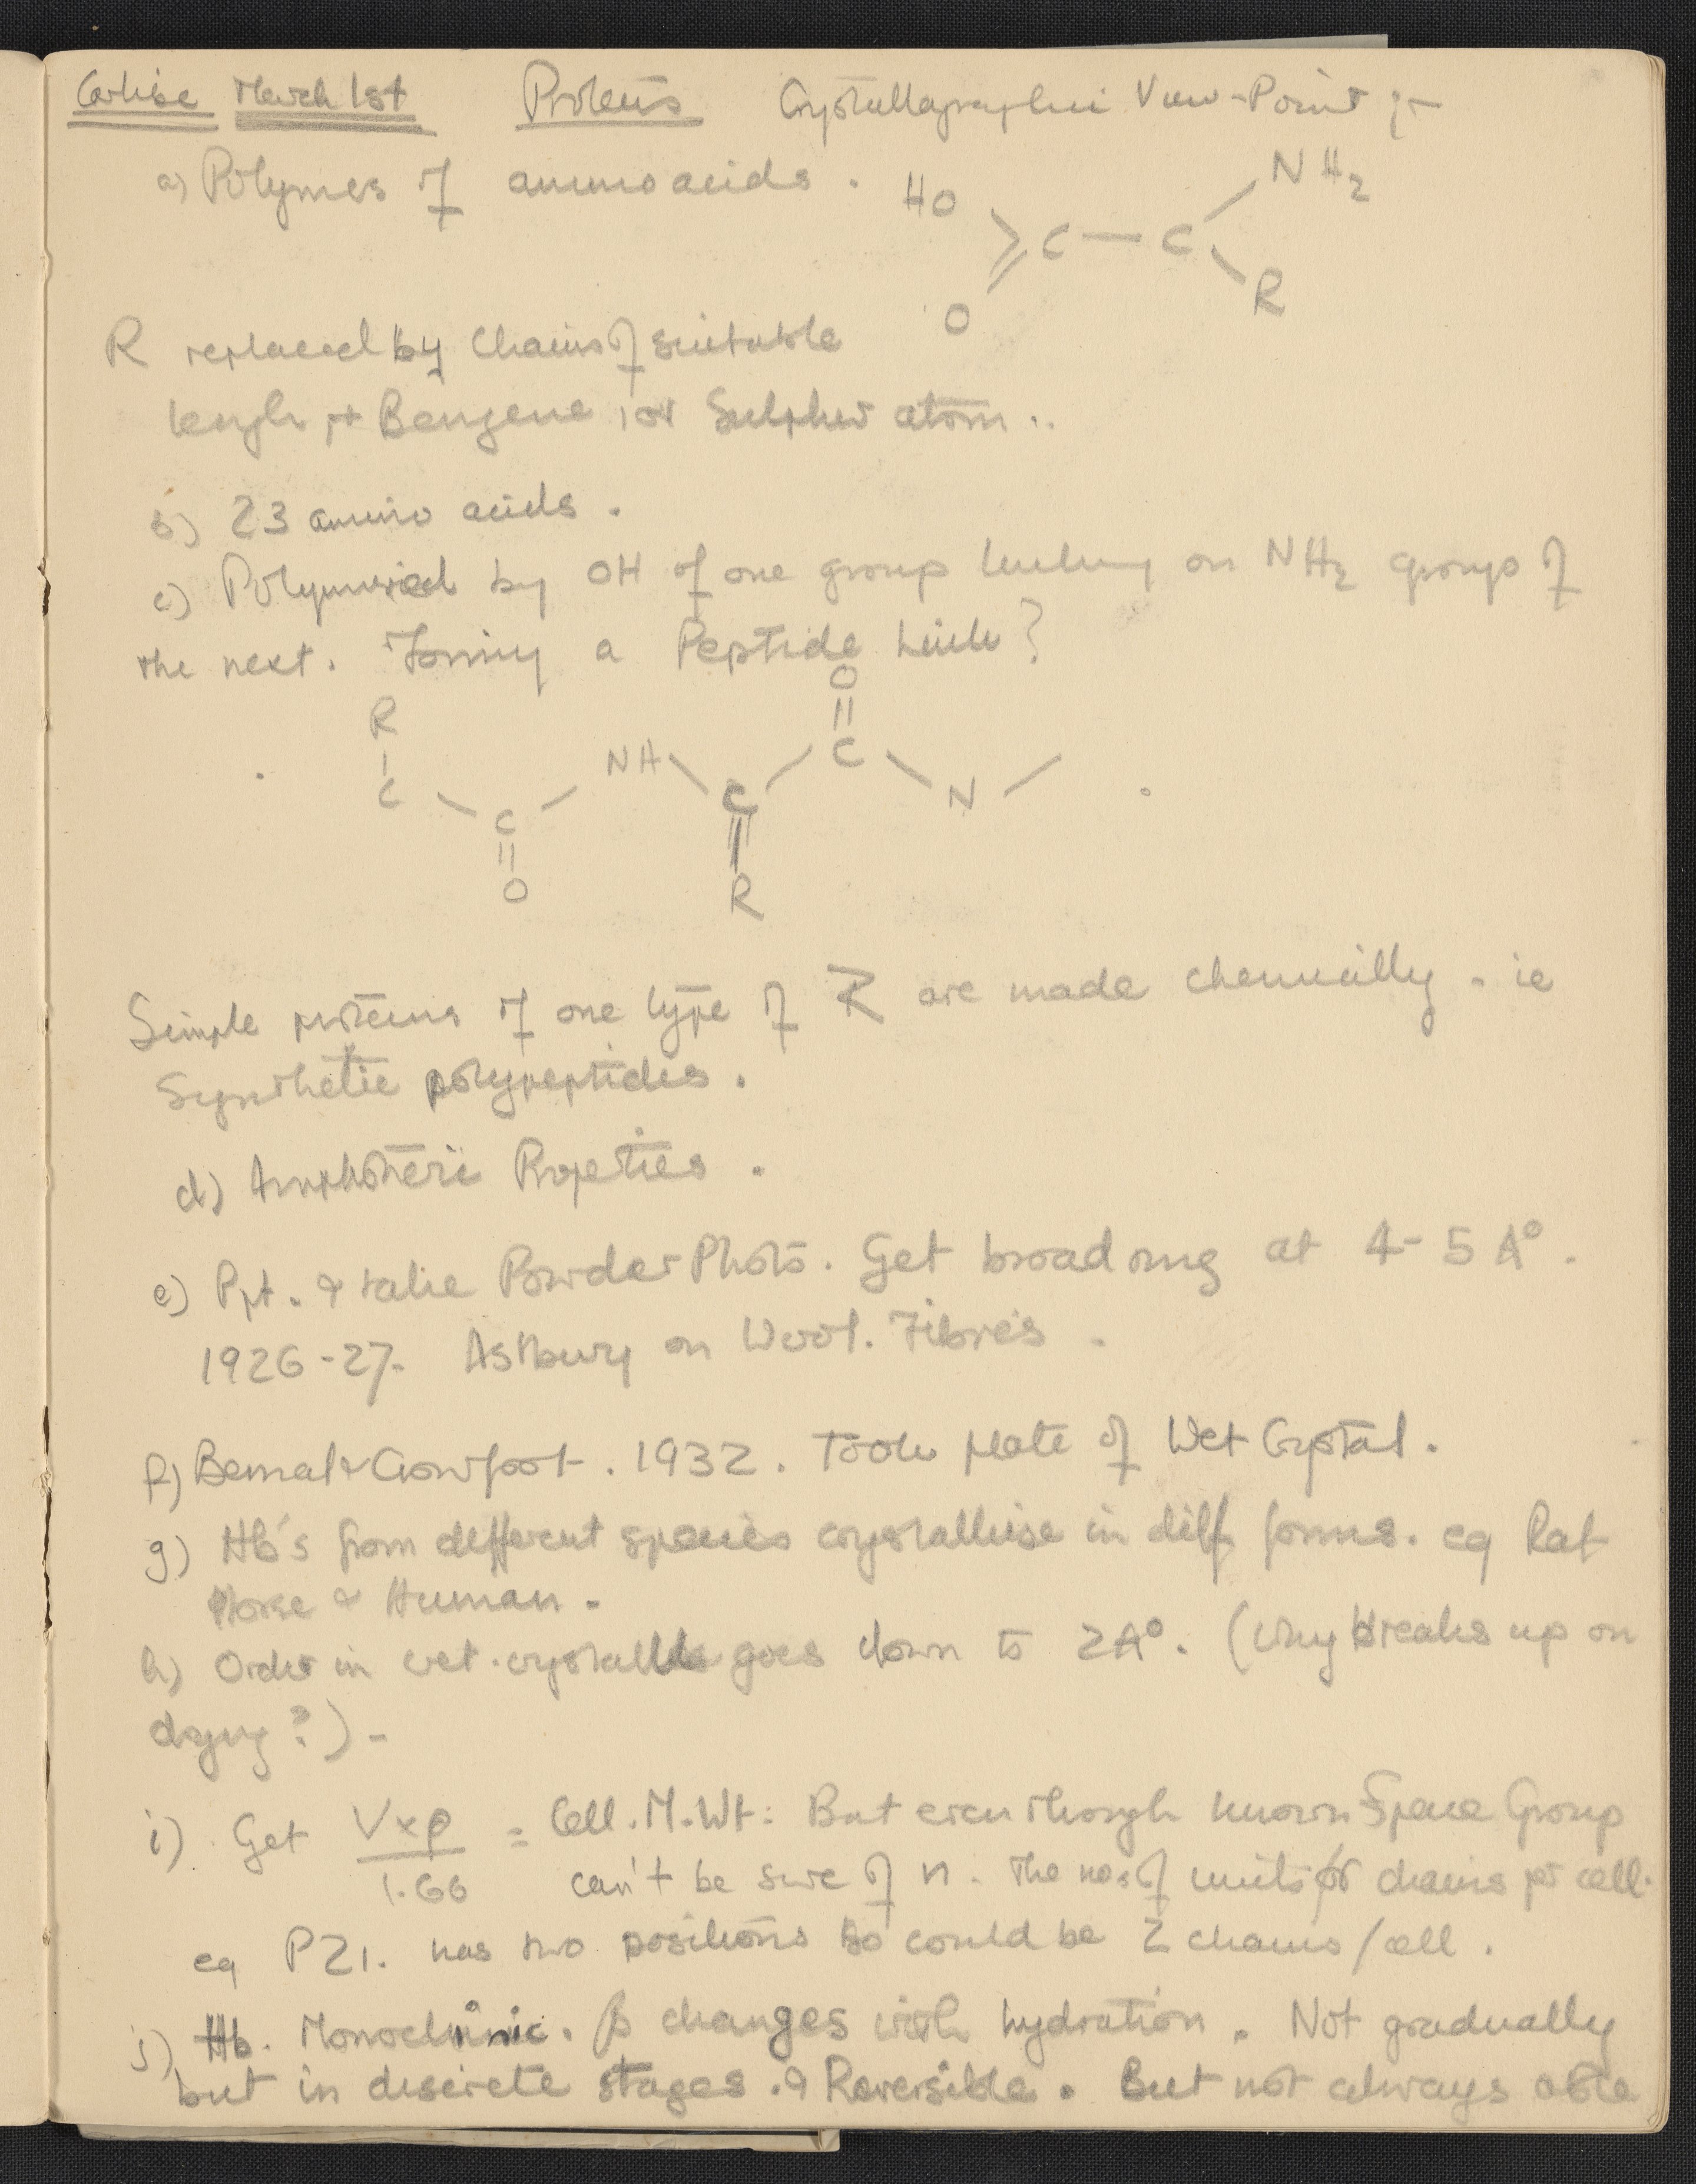 Carlise March 1st Proteins Crystallographic View-Point :-
a) Polymers of amino acids.
HO NH2
C — C
O R
R replaced by Chains of suitable
length, + Benzene, or Sulphur atom..
b) 23 amino acids.
c) Polymerized by OH of one group linking on NH2 groups of
the next. Forming a Peptide Link?
O
R
NH C
C C N
C
O R
Simple proteins of one type of R are made chemically - ie
Synthetic polypeptides.
d) Amphoteric Properties.
e) Ppt. & take Powder Photo. Get broad ring at 4-5 A°.
1926-27. Astbury on Wool. Fibres.
f) Bernal & Crowfoot. 1932. Took plate of Wet Crystal.
g) Hb's from different species crystallise in diff forms. eg Rat
Horse & Human.
h) Order in wet crystals goes down to 2A°. (Why breaks up on
drying?) -
i) Get V×ρ = Cell. M.Wt: But even though known Space Group
1.66 can't be sure of n. The no. of units or chains per cell.
eg P21. has two positions so could be 2 chains/cell.
j) Hb. Monoclinic. β changes with hydration. Not gradually
but in discrete stages. & Reversible. But not always able